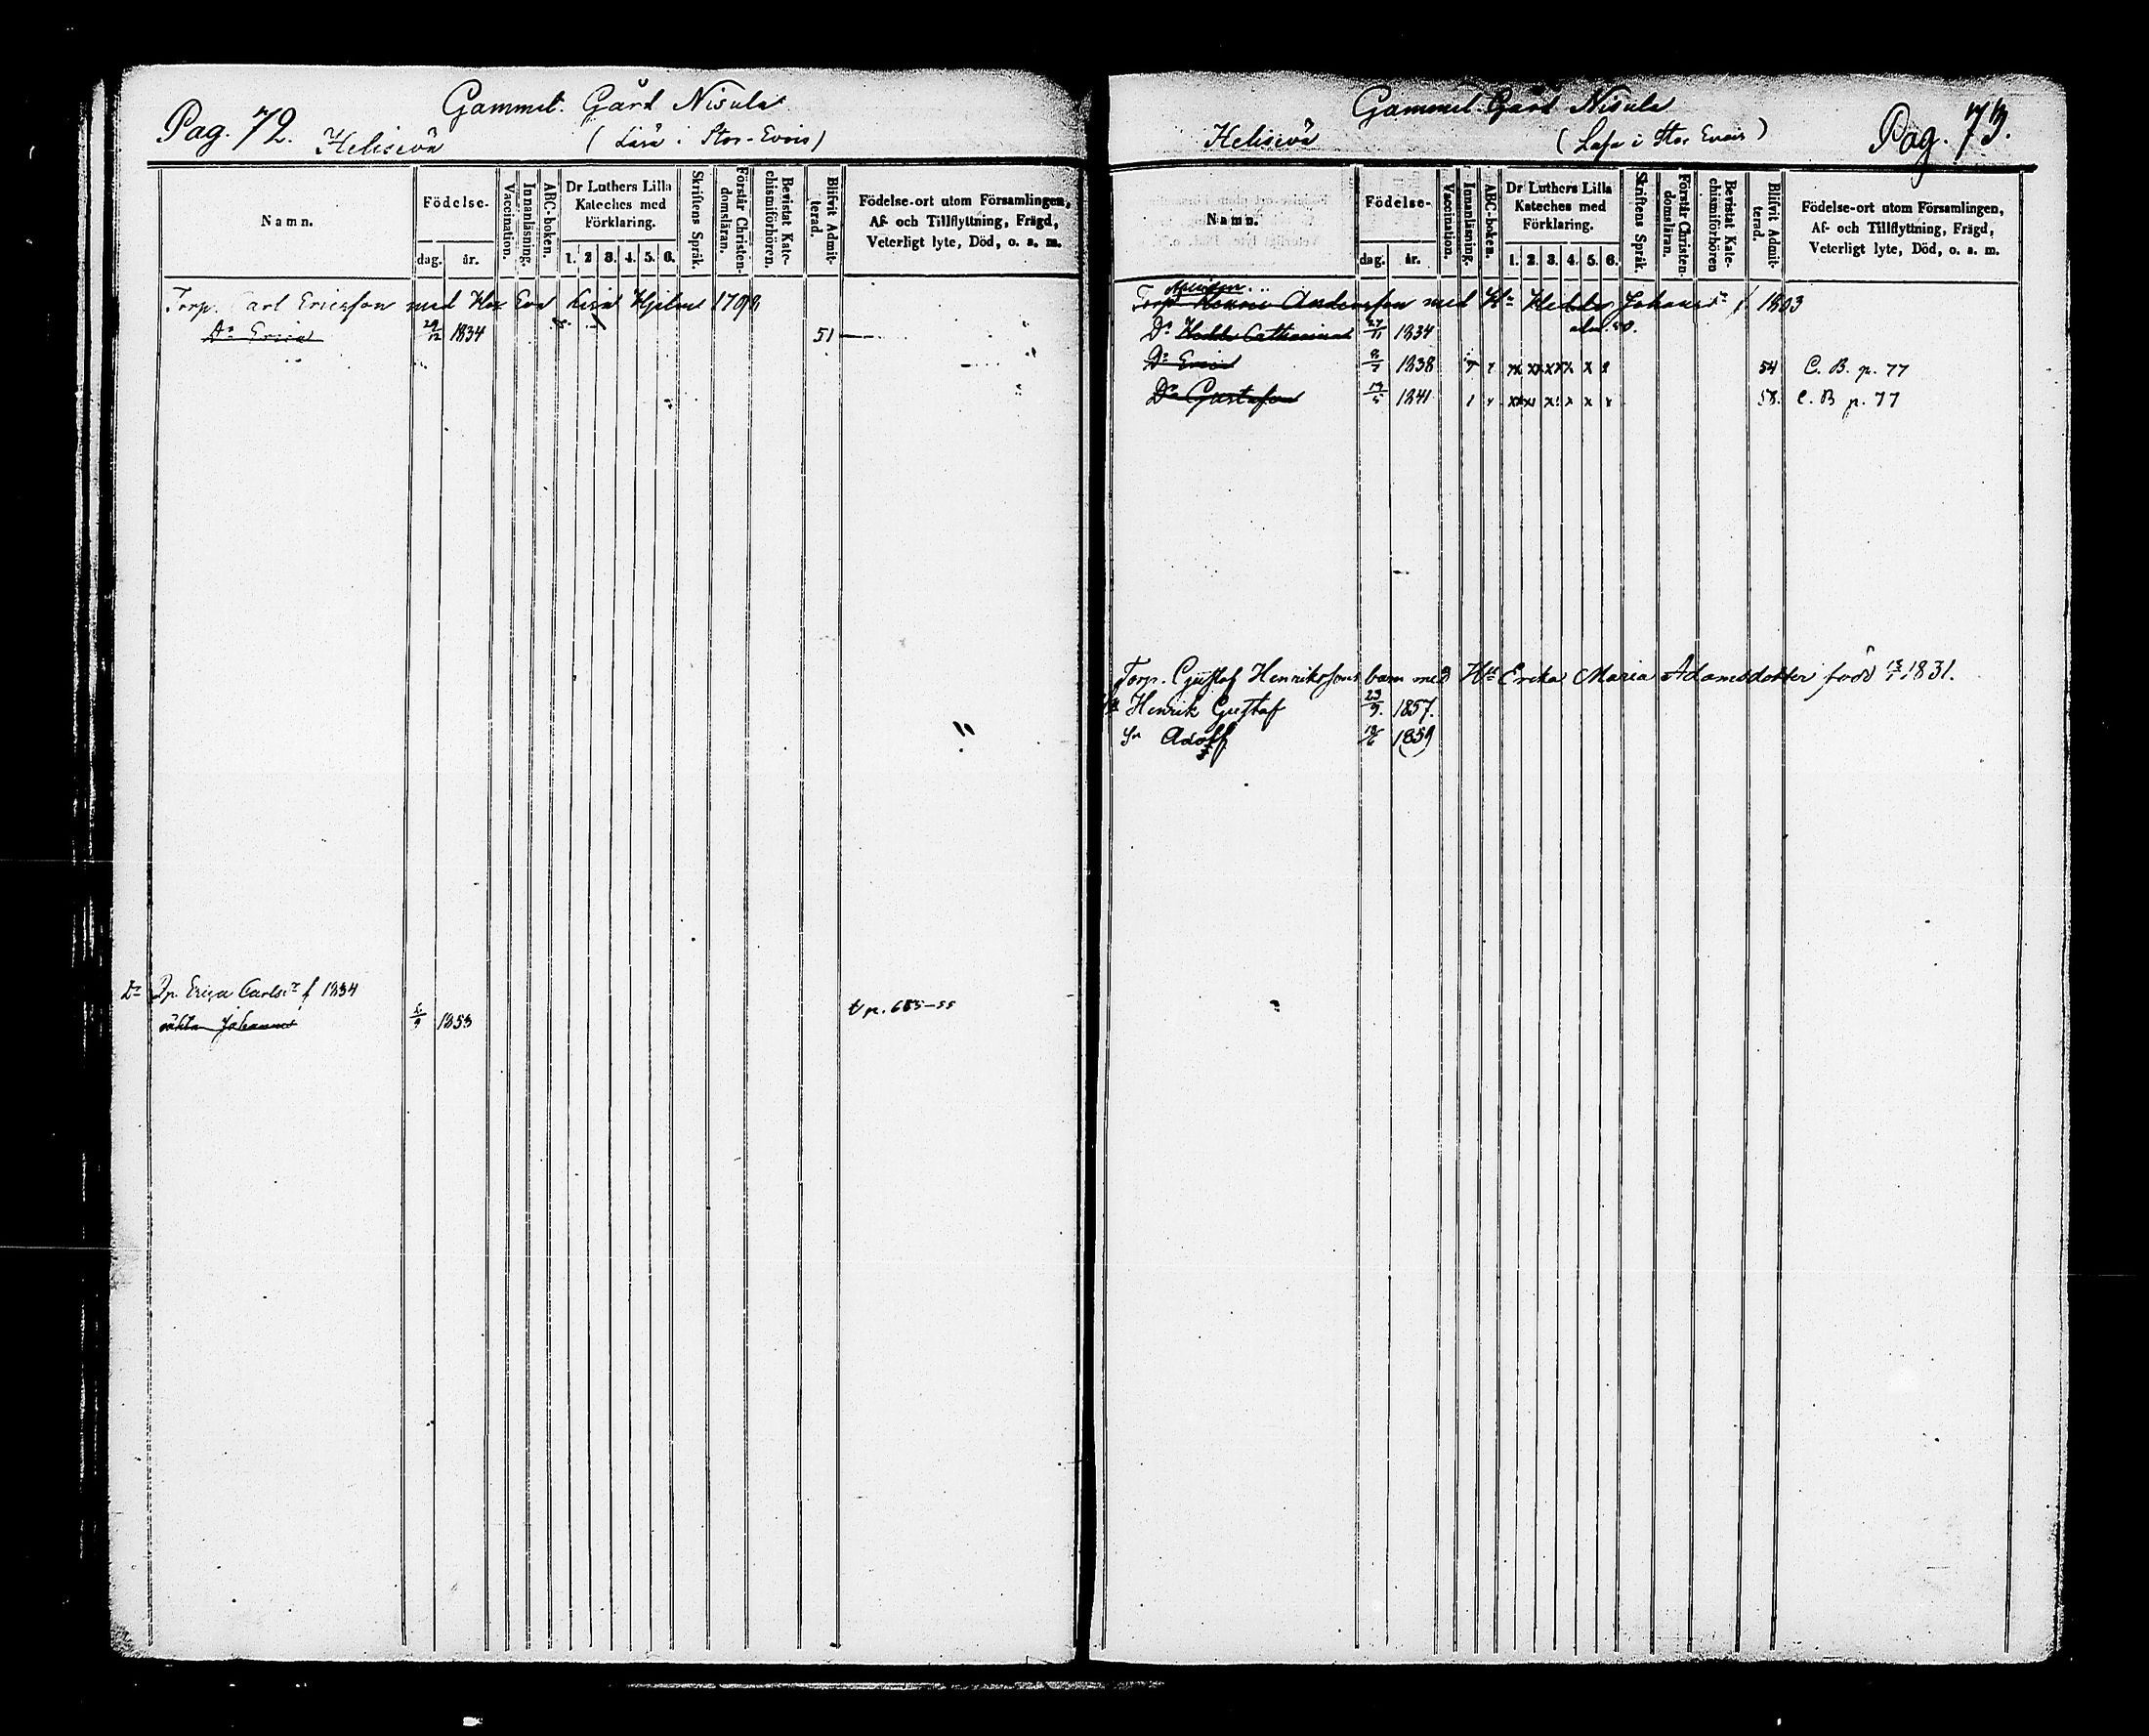 Pag. 72.
Gammel. Gård Nisula
Helisevä
( i Stor-Evois)
Namn.
Födelse-
dag.
år.
Vaccination.
Innanläsning.
ABC-boken.
Dr Luthers Lilla
Kateches med
Förklaring.
1. 2 3. 4. 5. 6.
Skriftens Språk.
Förstår Christen-
domsläran.
Bevistat Kate-
chismiförhören.
Blifvit Admit-
terad.
Födelse-ort utom Församlingen,
Af- och Tillflyttning, Frägd,
Veterligt lyte, Död, o. s. m.
Torp. Carl Ericsson med Hu Eva Lisa Hjelm
Dr Erica 29/12 1834 51
Dr Pp. Erica Carlsdr f 1834
oäkta Johannes 1853 t p. 685-55
Gammel. Gård Nisula
Helisevä
(Lasa i Stor Evois)
Pag. 73.
Namn.
Födelse-
dag.
år.
Vaccination.
Innanläsning.
ABC-boken.
Dr Luthers Lilla
Kateches med
Förklaring.
1. 2. 3. 4. 5. 6.
Skriftens Språk.
Förstår Christen-
domsläran.
Bevistat Kate-
chismiförhören
Blifvit Admit-
terad.
Födelse-ort utom Församlingen,
Af- och Tillflyttning, Frägd,
Veterligt lyte, Död, o. s. m.
Torp. Andersson med Hu Hedda Johansdr f 1803
Dr Hedda Catharina 1834
Dr Erica 1838 54 C. B. p. 77
Dr Gustafva 1841 58. C. B p. 77
Torp. Gustaf Henrikssons barn med Hu Erika Maria Adamsdotter född 1831.
Henrik Gustaf 23/9. 1857.
Sn Adolf 1859